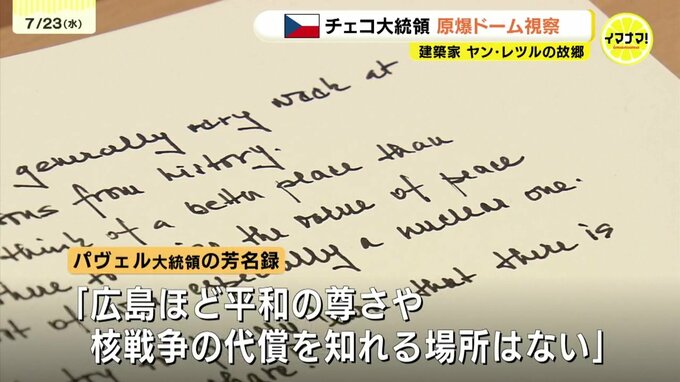 7/23(水)
チェコ大統領 原爆ドーム視察
建築家 ヤン・レツルの故郷
イマナマ!
generally very weak at
ons from history.
think of a better place than
the value of peace
especially a nuclear one.
that there is
パヴェル大統領の芳名録
「広島ほど平和の尊さや
核戦争の代償を知れる場所はない」